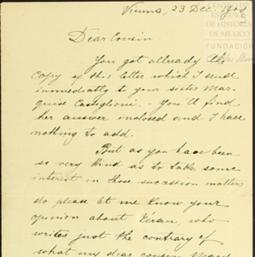 Vienna, 23 Dec.
Dear Cousin
You got allready the
copy of this letter which I send
immediatly to your sister Mar-
quise Castiglioni. - You'll find
her answer inclosed and I have
nothing to add.
But as you have been
so very kind as to take some
interest in those succession matters
do please let me know your
opinion about
who
writes just the contrary of
what my dear cousin
DE HISTORIA
DE MÉXICO
FUNDACIÓN